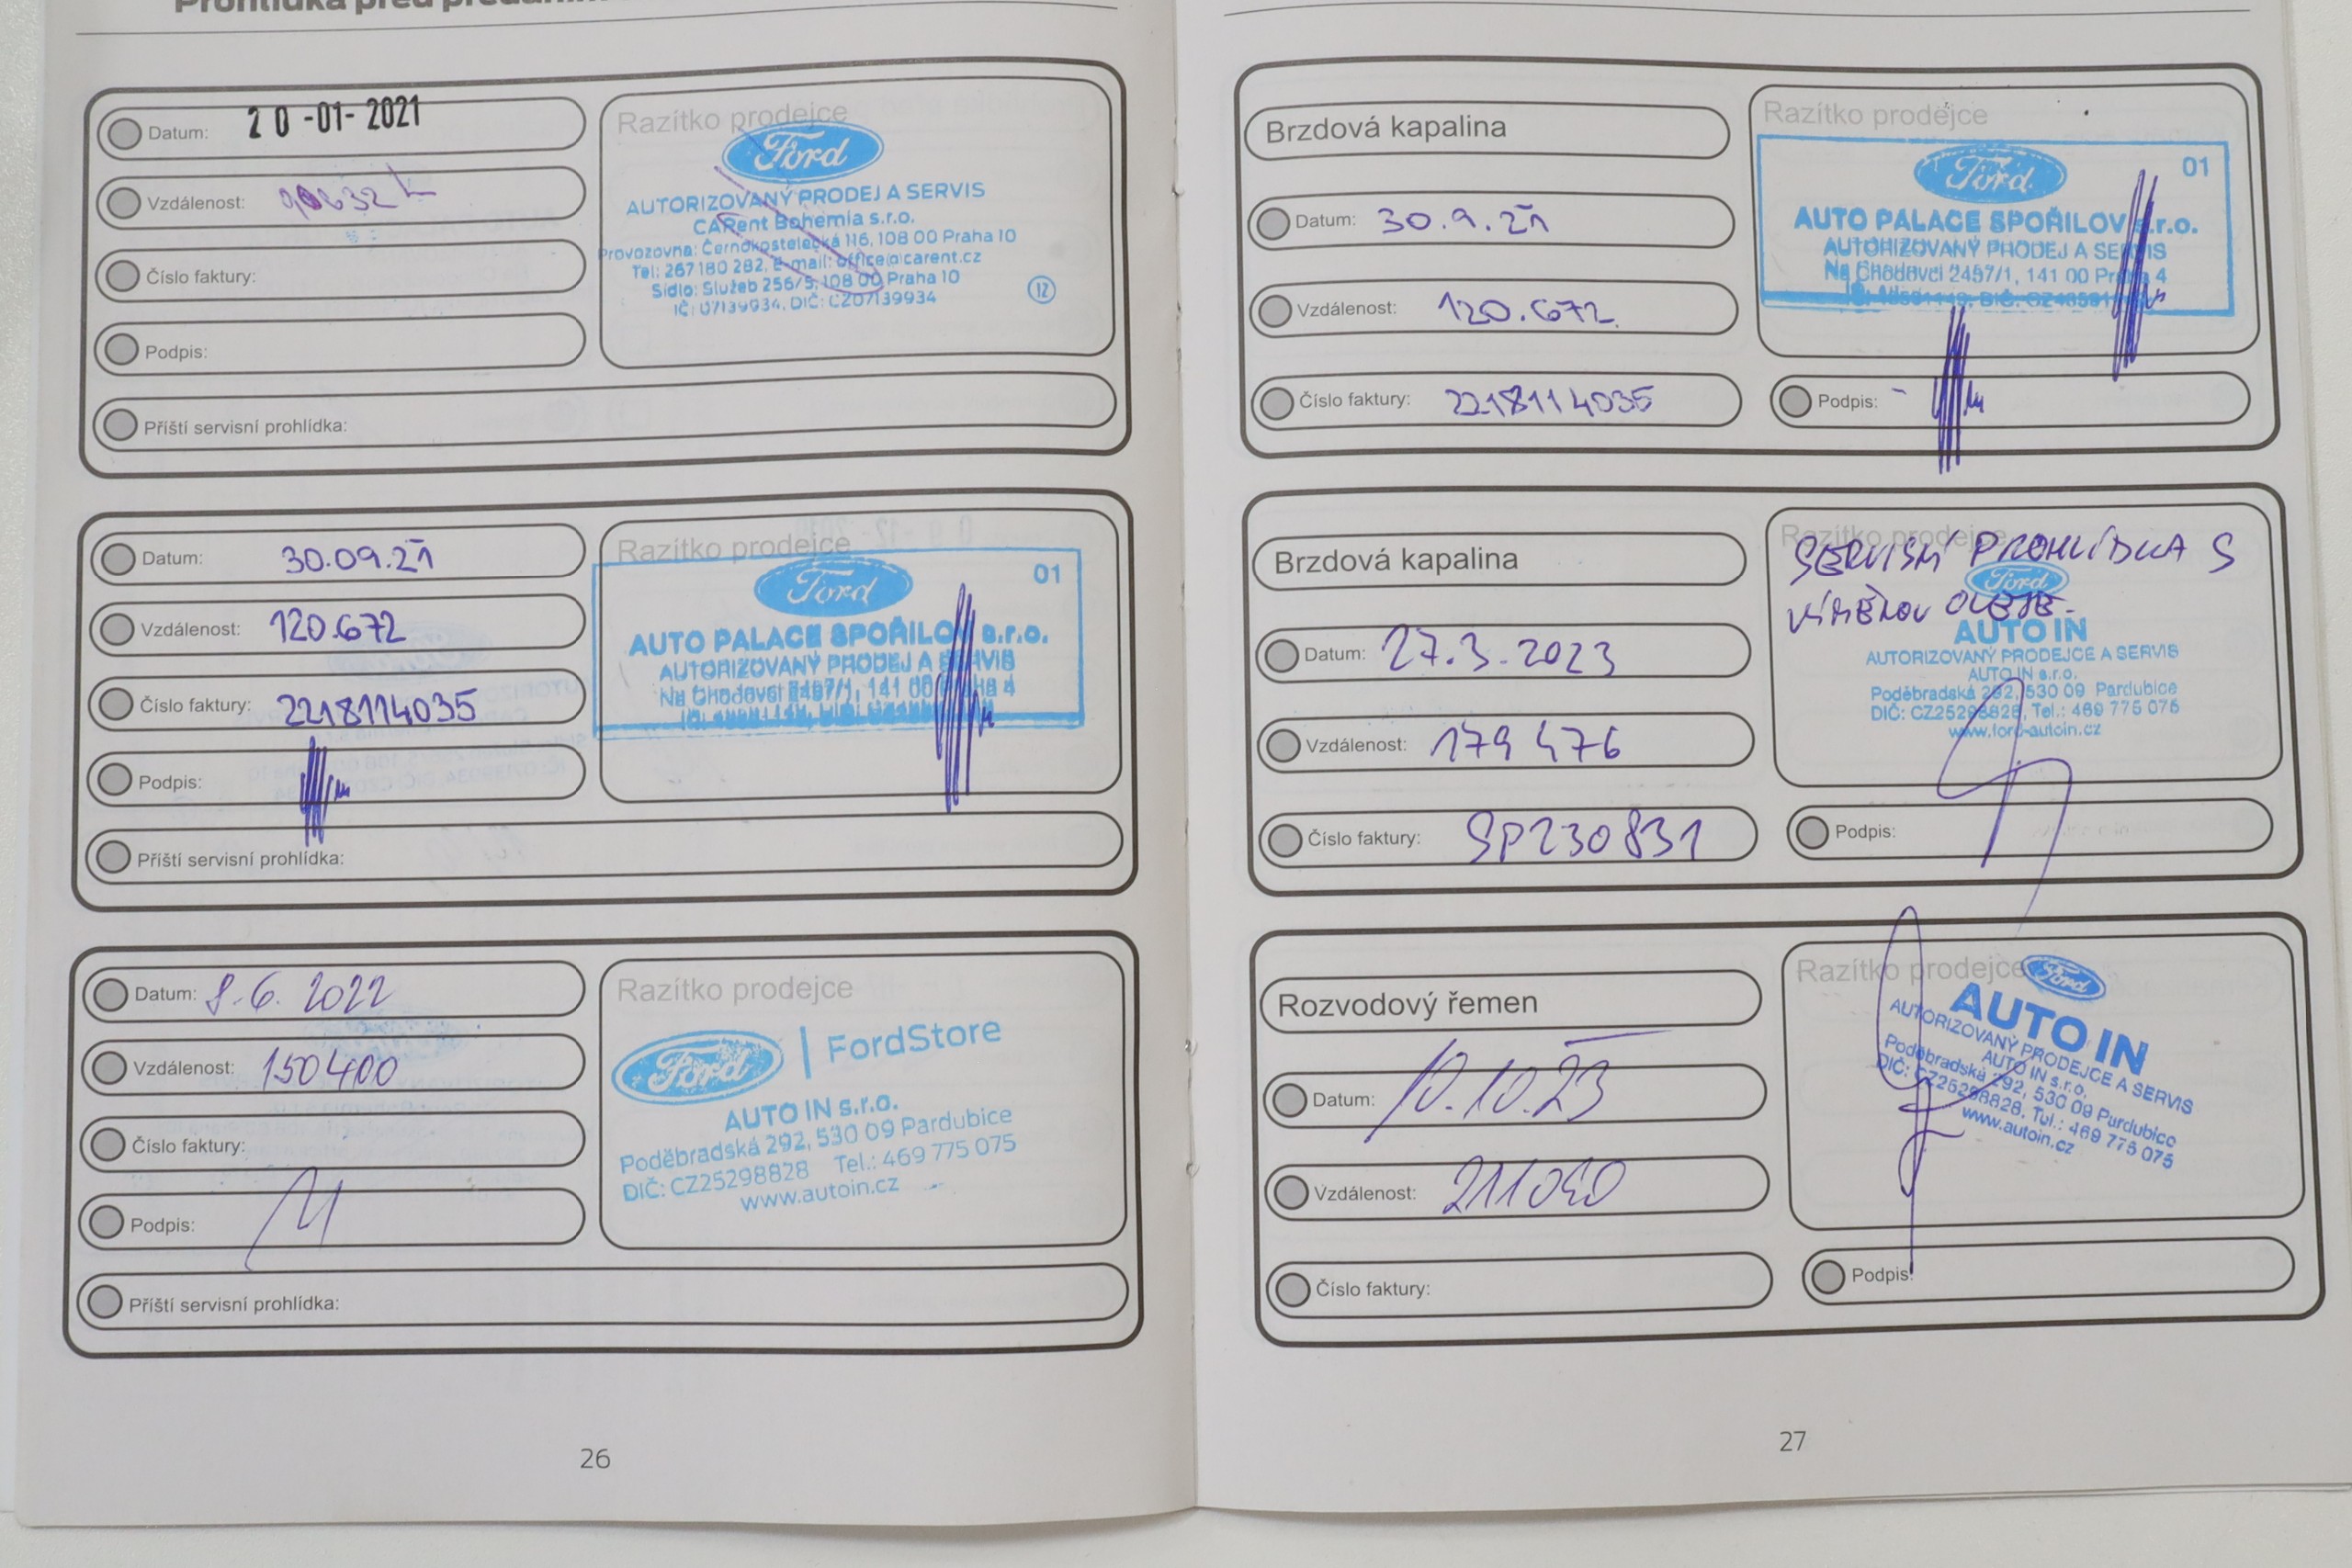 Datum: 20-01-2021
Vzdálenost:
Číslo faktury:
Podpis:
Příští servisní prohlídka:
Razítko prodejce
Ford
AUTORIZOVANÝ PRODEJ A SERVIS
CARent Bohemia s.r.o.
Provozovna: Černokostelecká 116, 108 00 Praha 10
Tel: 267 180 282, E-mail: office@carent.cz
Sídlo: Služeb 256/5, 108 00 Praha 10
IČ: 07139934, DIČ: CZ07139934
12
Datum: 30.09.21
Vzdálenost: 120.672
Číslo faktury: 2218114035
Podpis:
Příští servisní prohlídka:
Razítko prodejce
Ford
01
AUTO PALACE SPOŘILOV s.r.o.
AUTORIZOVANÝ PRODEJ A SERVIS
Na Chodovci 2457/1, 141 00 Praha 4
Datum: 8.6. 2022
Vzdálenost: 150400
Číslo faktury:
Podpis:
Příští servisní prohlídka:
Razítko prodejce
Ford | FordStore
AUTO IN s.r.o.
Poděbradská 292, 530 09 Pardubice
DIČ: CZ25298828 Tel.: 469 775 075
www.autoin.cz
26
Brzdová kapalina
Datum: 30.9.21
Vzdálenost: 120.672
Číslo faktury: 2218114035
Razítko prodejce
Ford
01
AUTO PALACE SPOŘILOV s.r.o.
AUTORIZOVANÝ PRODEJ A SERVIS
Na Chodovci 2457/1, 141 00 Praha 4
Podpis:
Brzdová kapalina
Datum: 27.3.2023
Vzdálenost: 179 476
Číslo faktury: SP230831
Razítko prodejce
SERVISNÍ PROHLÍDKA S
VÝMĚNOU OLEJE.
Ford
AUTO IN
AUTORIZOVANÝ PRODEJCE A SERVIS
AUTO IN s.r.o.
Poděbradská 292, 530 09 Pardubice
DIČ: CZ25298828, Tel.: 469 775 075
www.ford-autoin.cz
Podpis:
Rozvodový řemen
Datum: 10.10.23
Vzdálenost: 211040
Číslo faktury:
Razítko prodejce
Ford
AUTO IN
AUTORIZOVANÝ PRODEJCE A SERVIS
AUTO IN s.r.o.
Poděbradská 292, 530 09 Pardubice
DIČ: CZ25298828, Tel.: 469 775 075
www.autoin.cz
Podpis:
27